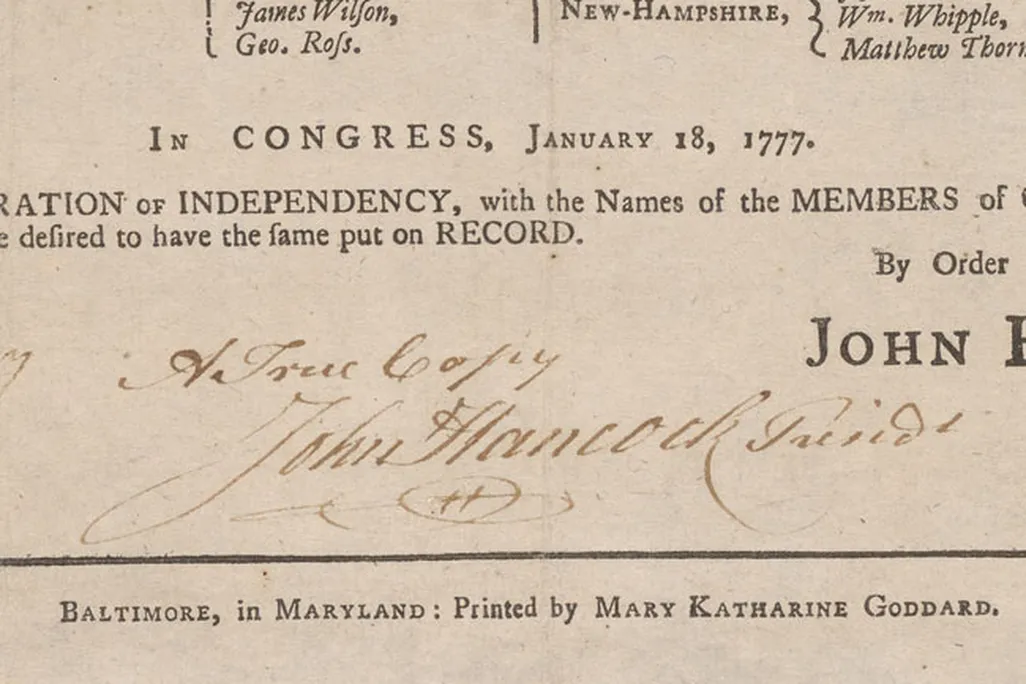 James Wilſon,
Geo. Roſs.
New-Hampshire,
Wm. Whipple,
Matthew Thorn
In CONGRESS, January 18, 1777.
RATION of INDEPENDENCY, with the Names of the MEMBERS of
e deſired to have the ſame put on RECORD.
By Order
John H
A True Copy
John Hancock Presidt
Baltimore, in Maryland: Printed by Mary Katharine Goddard.